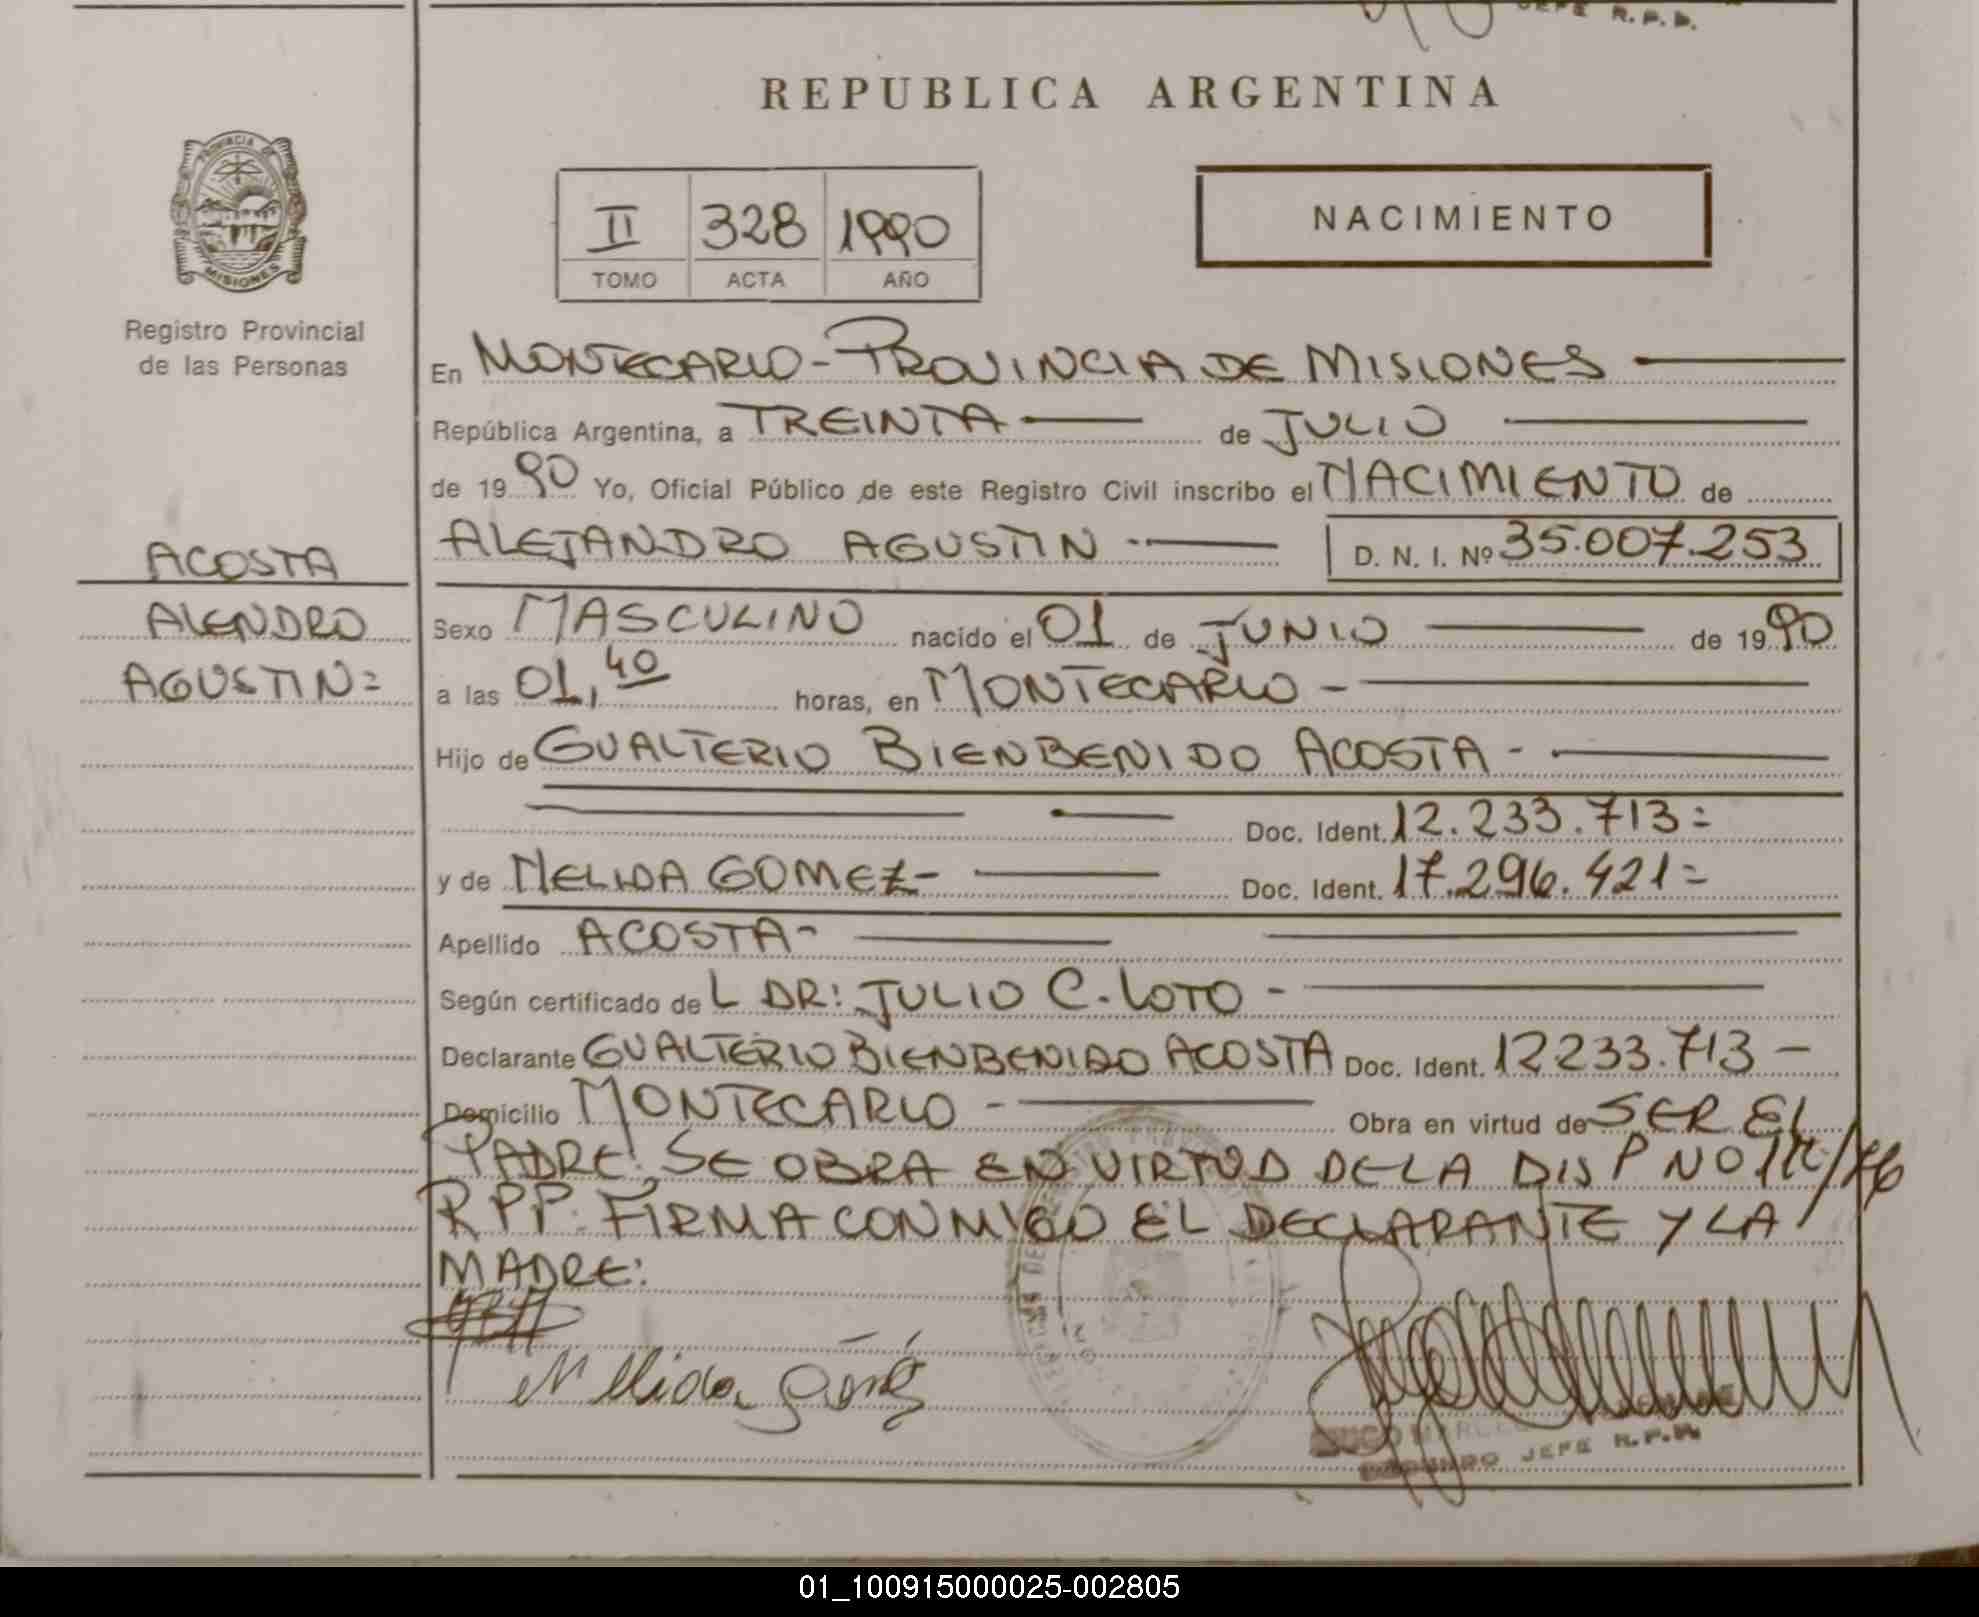 JEFE R.P.P.
REPUBLICA ARGENTINA
PROVINCIA DE MISIONES
II 328 1990
TOMO ACTA AÑO
NACIMIENTO
Registro Provincial
de las Personas
En MONTECARLO - PROVINCIA DE MISIONES
República Argentina, a TREINTA de JULIO
de 1990 Yo, Oficial Público de este Registro Civil inscribo el NACIMIENTO de
ALEJANDRO AGUSTIN - D. N. I. Nº 35.007.253
ACOSTA
ALENDRO
AGUSTIN=
Sexo MASCULINO nacido el 01 de JUNIO de 1990
a las 01,40 horas, en MONTECARLO -
Hijo de GUALTERIO BIENBENIDO ACOSTA -
Doc. Ident. 12.233.713=
y de NELIDA GOMEZ- Doc. Ident. 17.296.421=
Apellido ACOSTA-
Según certificado de L DR: JULIO C. LOTO -
Declarante GUALTERIO BIENBENIDO ACOSTA Doc. Ident. 12233.713 -
Domicilio MONTECARLO - Obra en virtud de SER EL
PADRE: SE OBRA EN VIRTUD DE LA DISP NO
RPP. FIRMA CONMIGO EL DECLARANTE Y LA
MADRE:
Nelida Gómez
JEFE R.P.P.
01_100915000025-002805